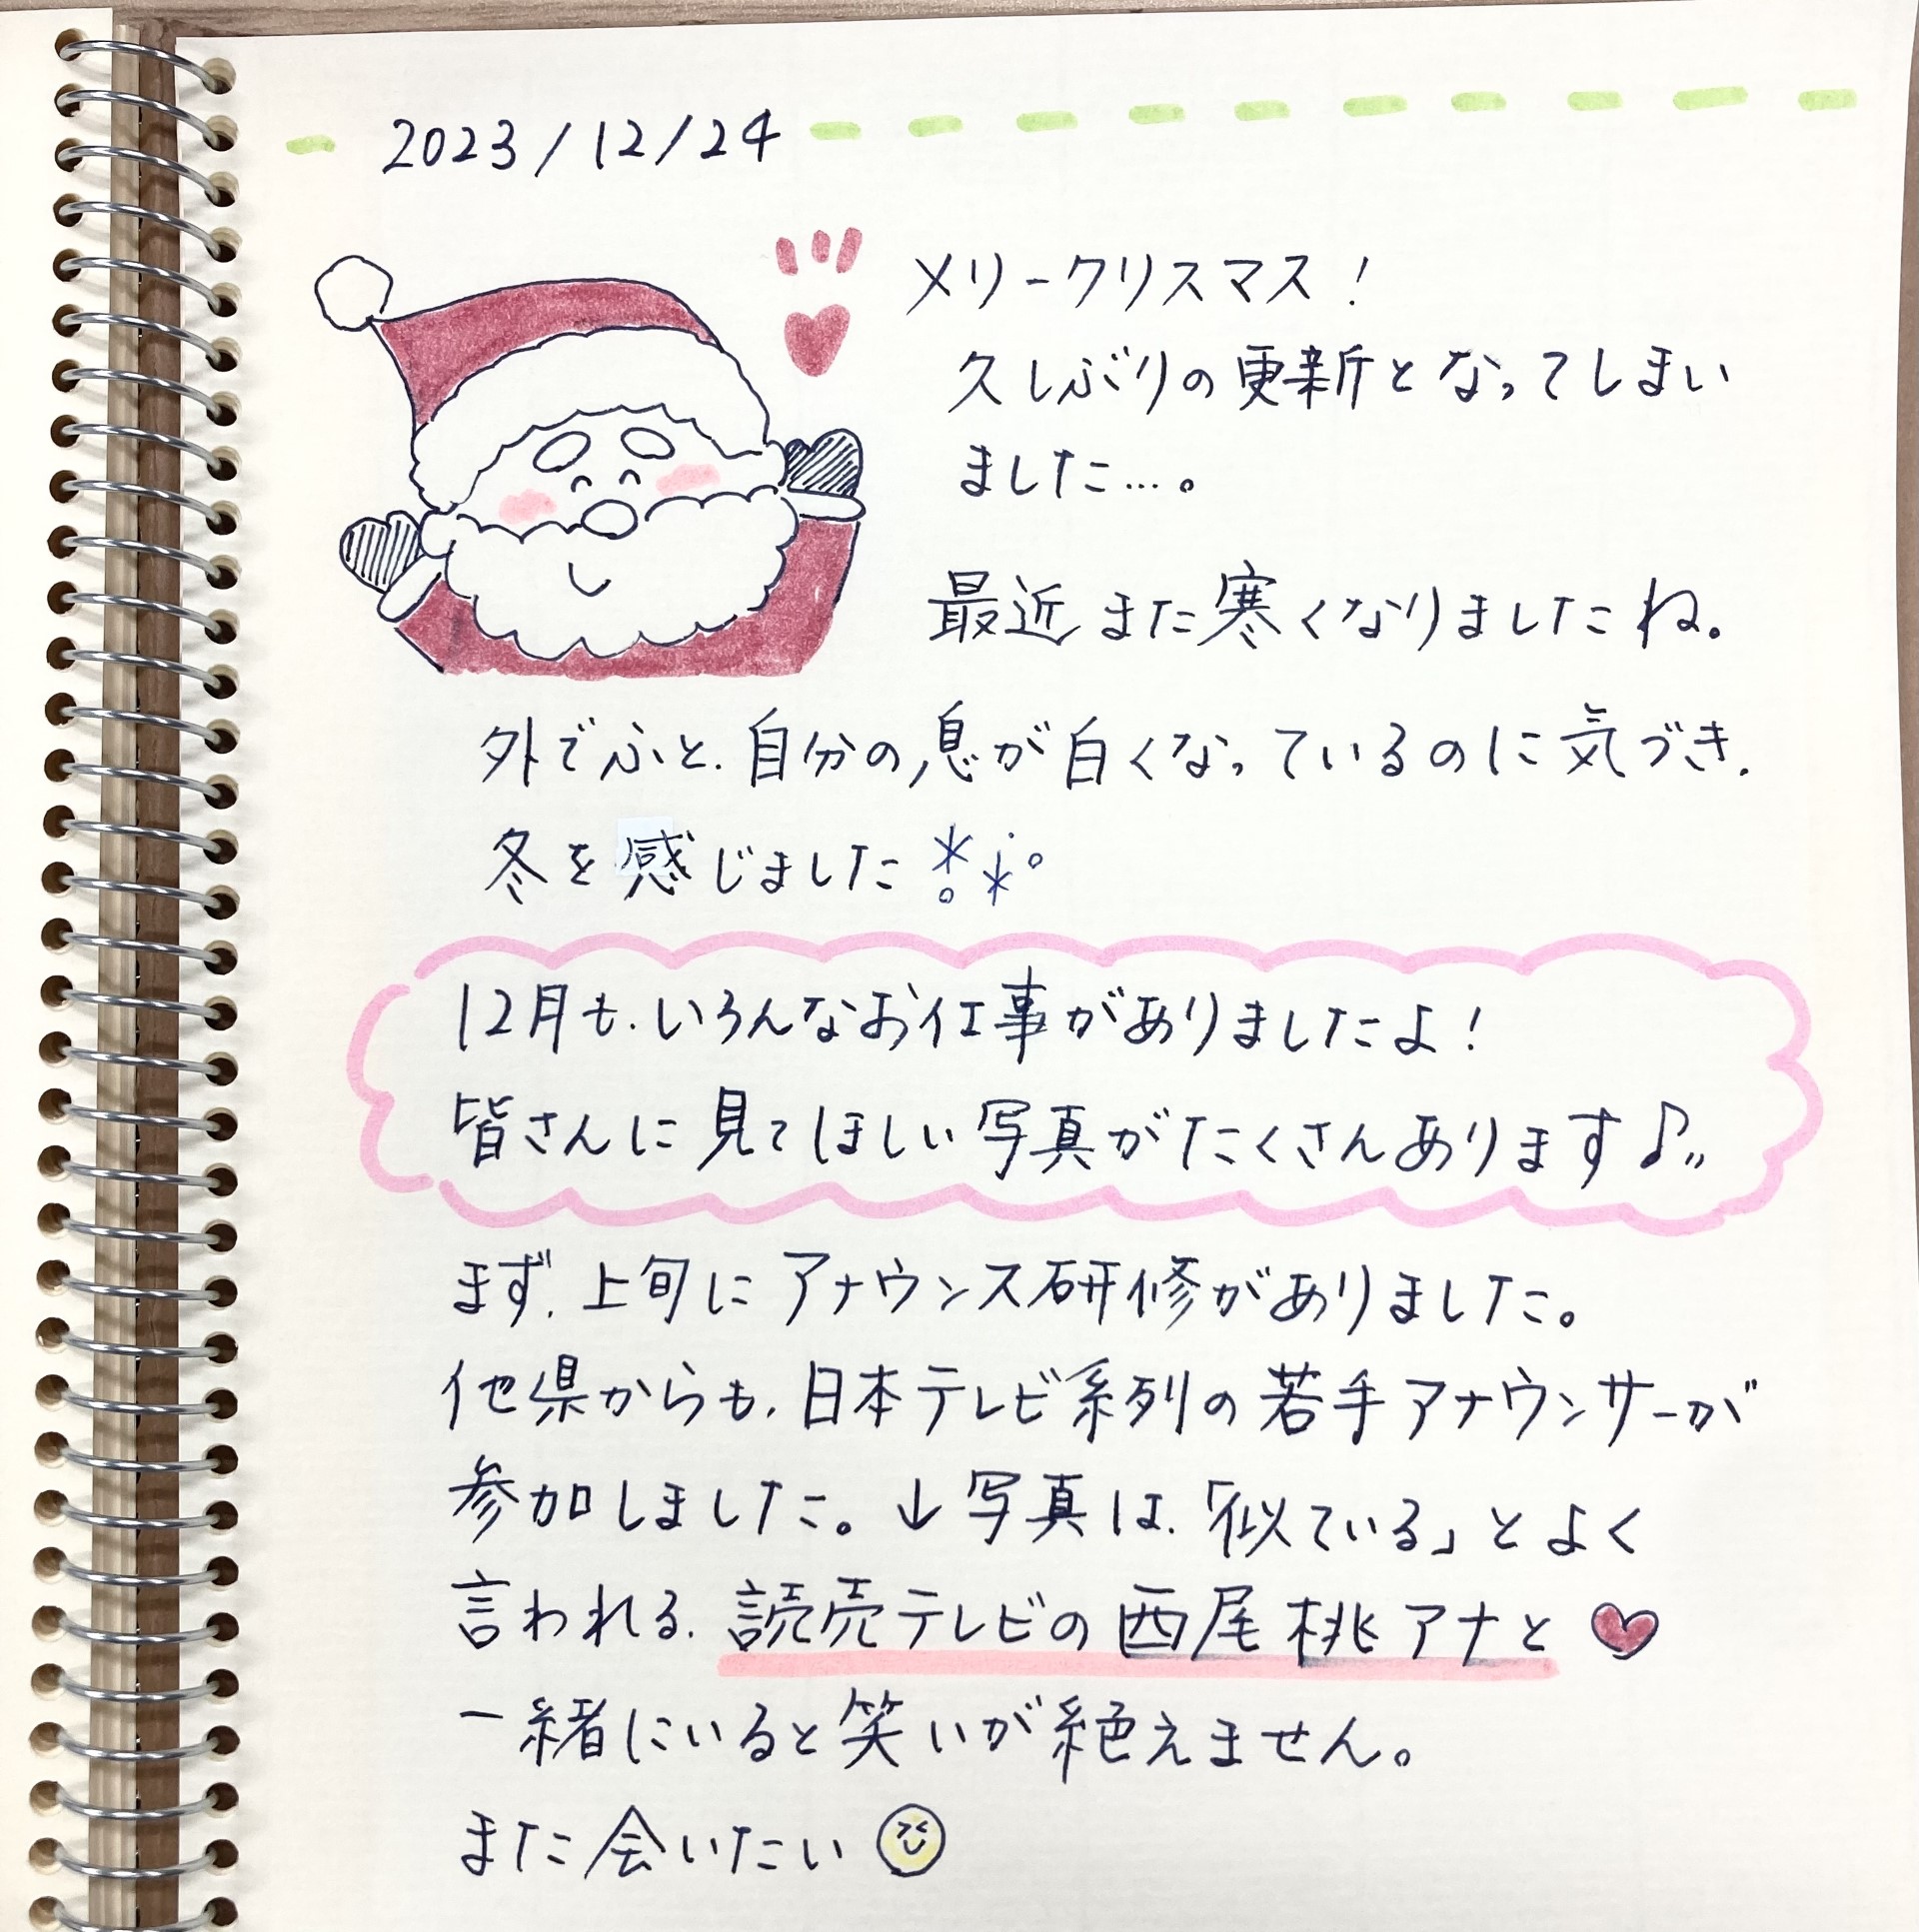 2023/12/24
メリークリスマス！
久しぶりの更新となってしまい
ました…。
最近また寒くなりましたね。
外でふと、自分の息が白くなっているのに気づき、
冬を感じました
12月も、いろんなお仕事がありましたよ！
皆さんに見てほしい写真がたくさんあります♪〃
まず、上旬にアナウンス研修がありました。
他県からも、日本テレビ系列の若手アナウンサーが
参加しました。↓写真は、「似ている」とよく
言われる、読売テレビの西尾桃アナと♥
一緒にいると笑いが絶えません。
また会いたい